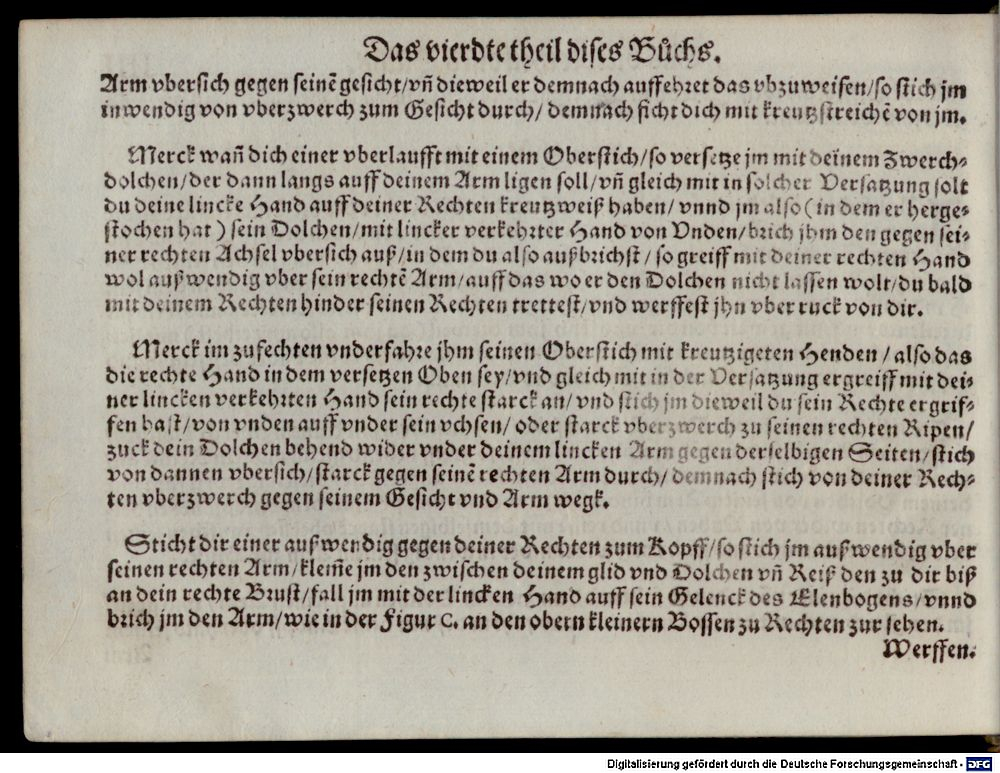 Das vierdte theil dises Bůchs.
Arm vbersich gegen seinẽ gesicht/vñ dieweil er demnach auffehret das vbzuweisen/so stich jm
inwendig von vberzwerch zum Gesicht durch/ demnach ficht dich mit kreutzstreichẽ von jm.
Merck wañ dich einer vberlaufft mit einem Oberstich/so versetze jm mit deinem Zwerch⸗
dolchen/der dann langs auff deinem Arm ligen soll/vñ gleich mit in solcher Versatzung solt
du deine lincke Hand auff deiner Rechten kreutzweiß haben/ vnnd jm also (in dem er herge⸗
stochen hat) sein Dolchen/mit lincker verkehrter Hand von Vnden/brich jhm den gegen sei⸗
ner rechten Achsel vbersich auß/in dem du also außbrichst/ so greiff mit deiner rechten Hand
wol außwendig vber sein rechtẽ Arm/auff das wo er den Dolchen nicht lassen wolt/du bald
mit deinem Rechten hinder seinen Rechten trettest/vnd werffest jhn vber ruck von dir.
Merck im zufechten vnderfahre jhm seinen Oberstich mit kreutzigeten Henden / also das
die rechte Hand in dem versetzen Oben sey/vnd gleich mit in der Versatzung ergreiff mit dei⸗
ner lincken verkehrten Hand sein rechte starck an/ vnd stich jm dieweil du sein Rechte ergrif⸗
fen hast/von vnden auff vnder sein vchsen/ oder starck vberzwerch zu seinen rechten Ripen/
zuck dein Dolchen behend wider vnder deinem lincken Arm gegen derselbigen Seiten/stich
von dannen vbersich/starck gegen seinẽ rechten Arm durch/ demnach stich von deiner Rech⸗
ten vberzwerch gegen seinem Gesicht vnd Arm wegk.
Sticht dir einer außwendig gegen deiner Rechten zum Kopff/so stich jm außwendig vber
seinen rechten Arm/klem̃e jm den zwischen deinem glid vnd Dolchen vñ Reiß den zu dir biß
an dein rechte Brust/fall jm mit der lincken Hand auff sein Gelenck des Elenbogens/vnnd
brich jm den Arm/wie in der Figur C. an den obern kleinern Bossen zu Rechten zur sehen.
Werffen.
Digitalisierung gefördert durch die Deutsche Forschungsgemeinschaft - DFG